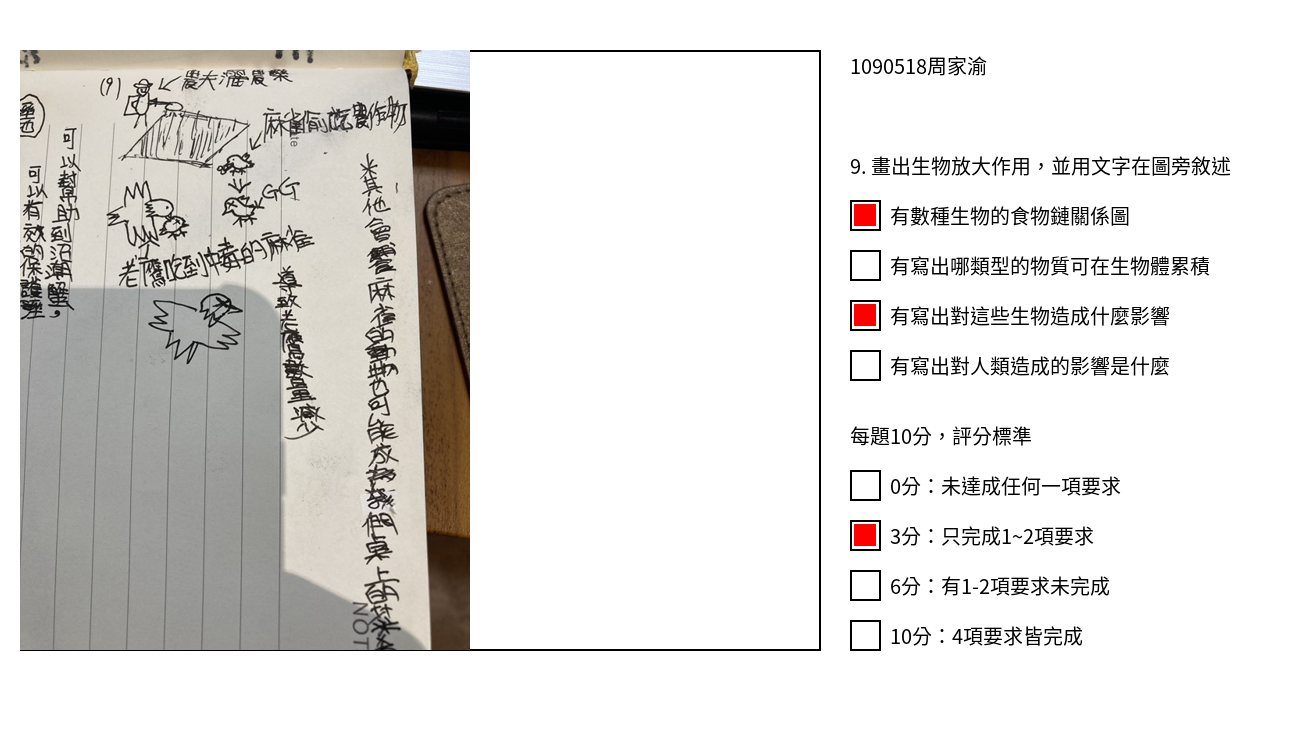 (9)
農夫灑農藥
麻雀偷吃農作物
GG
老鷹吃到中毒的麻雀
導致老鷹數量減少
其他會
麻雀的動
也可能放
們桌上的
可以幫助到沼潮蟹。
可以有效的保護
NOT
1090518周家渝
9. 畫出生物放大作用，並用文字在圖旁敘述
有數種生物的食物鏈關係圖
有寫出哪類型的物質可在生物體累積
有寫出對這些生物造成什麼影響
有寫出對人類造成的影響是什麼
每題10分，評分標準
0分：未達成任何一項要求
3分：只完成1~2項要求
6分：有1-2項要求未完成
10分：4項要求皆完成